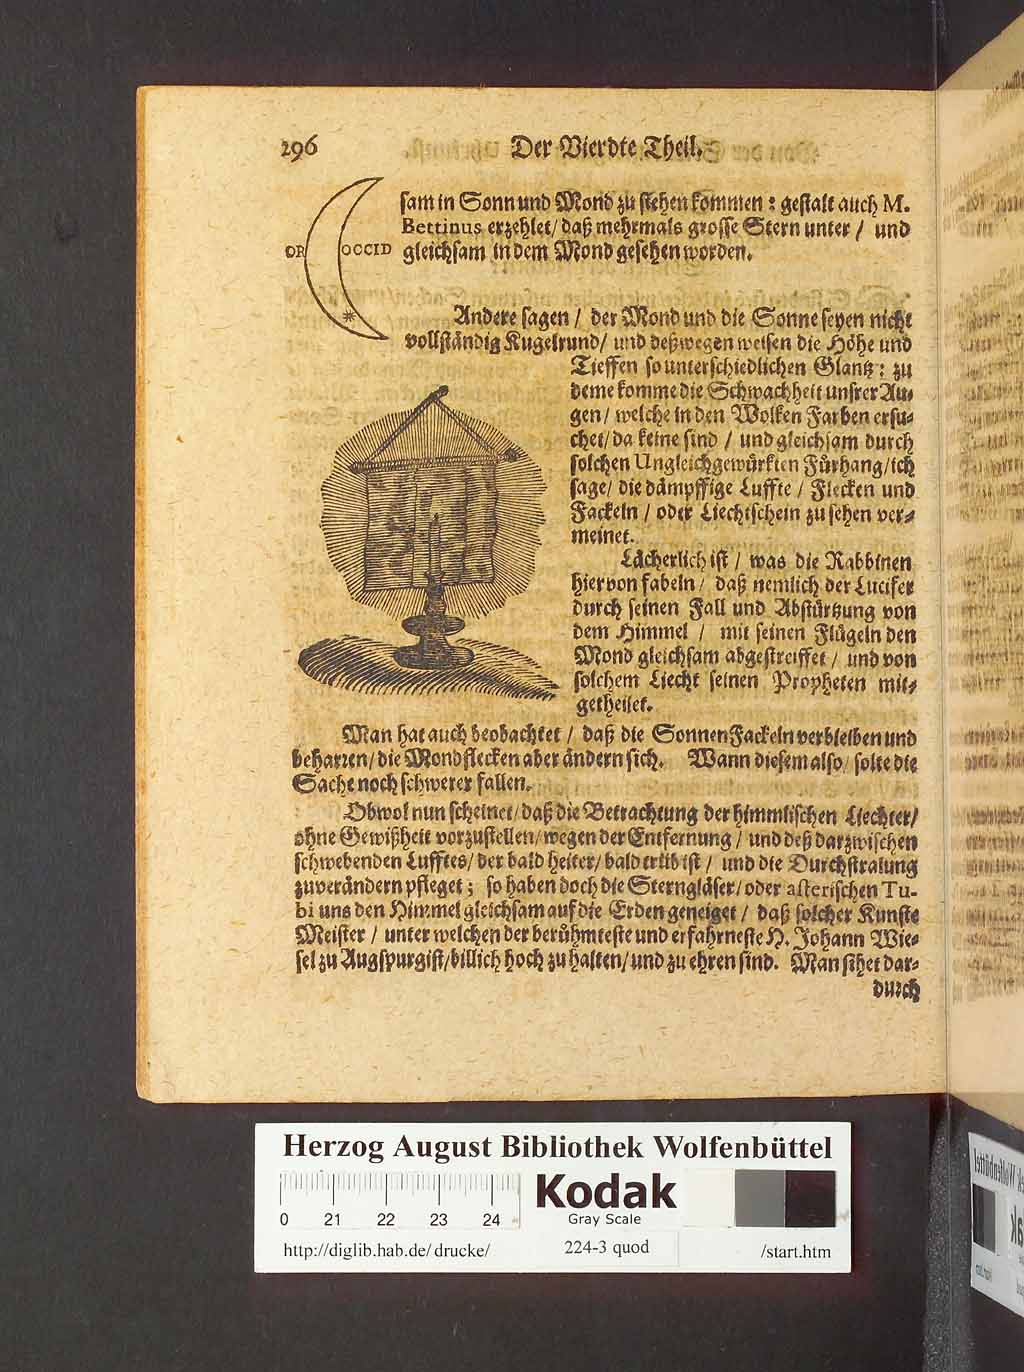 296 Der Vierdte Theil.
sam in Sonn und Mond zu stehen kommen: gestalt auch M.
Bettinus erzehlet/ daß mehrmals grosse Stern unter / und
OR OCCID gleichsam in dem Mond gesehen worden.
Andere sagen / der Mond und die Sonne seyen nicht
vollständig Kugelrund/ und deßwegen weisen die Höhe und
Tieffen so unterschiedlichen Glantz: zu
deme komme die Schwachheit unsrer Au-
gen/ welche in den Wolken Farben ersu-
chet/ da keine sind / und gleichsam durch
solchen Ungleichgewürkten Fürhang/ ich
sage/ die dämpffige Luffte / Flecken und
Fackeln / oder Liechtschein zu sehen ver-
meinet.
Lächerlich ist / was die Rabbinen
hiervon fabeln / daß nemlich der Lucifer
durch seinen Fall und Abstürtzung von
dem Himmel / mit seinen Flügeln den
Mond gleichsam abgestreiffet / und von
solchem Liecht seinen Propheten mit-
getheilet.
Man hat auch beobachtet / daß die SonnenFackeln verbleiben und
beharren/ die Mondflecken aber ändern sich. Wann diesem also/ solte die
Sache noch schwerer fallen.
Obwol nun scheinet/ daß die Betrachtung der himmlischen Liechter/
ohne Gewißheit vorzustellen/ wegen der Entfernung / und deß darzwischen
schwebenden Lufftes/ der bald heiter/ bald trüb ist / und die Durchstralung
zuverändern pfleget; so haben doch die Sterngläser/ oder asterischen Tu-
bi uns den Himmel gleichsam auf die Erden geneiget / daß solcher Kunste
Meister / unter welchen der berühmteste und erfahrneste H. Johann Wie-
sel zu Augspurg ist/ billich hoch zu halten/ und zu ehren sind. Man sihet dar-
durch
Herzog August Bibliothek Wolfenbüttel
Kodak
Gray Scale
0 21 22 23 24
http://diglib.hab.de/drucke/ 224-3 quod /start.htm